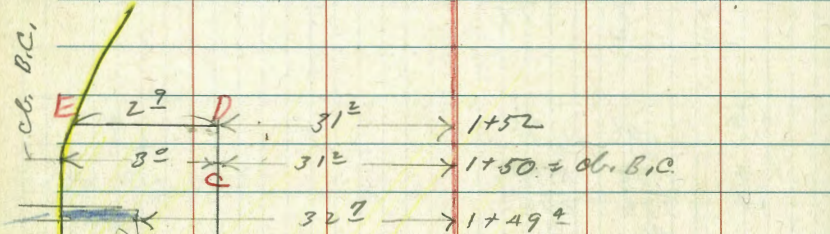 cb. B.C.
E 2 9 D 31 2 1+52
3 0 31 2 1+50 = cb. B.C.
C
32 7 1+49 4